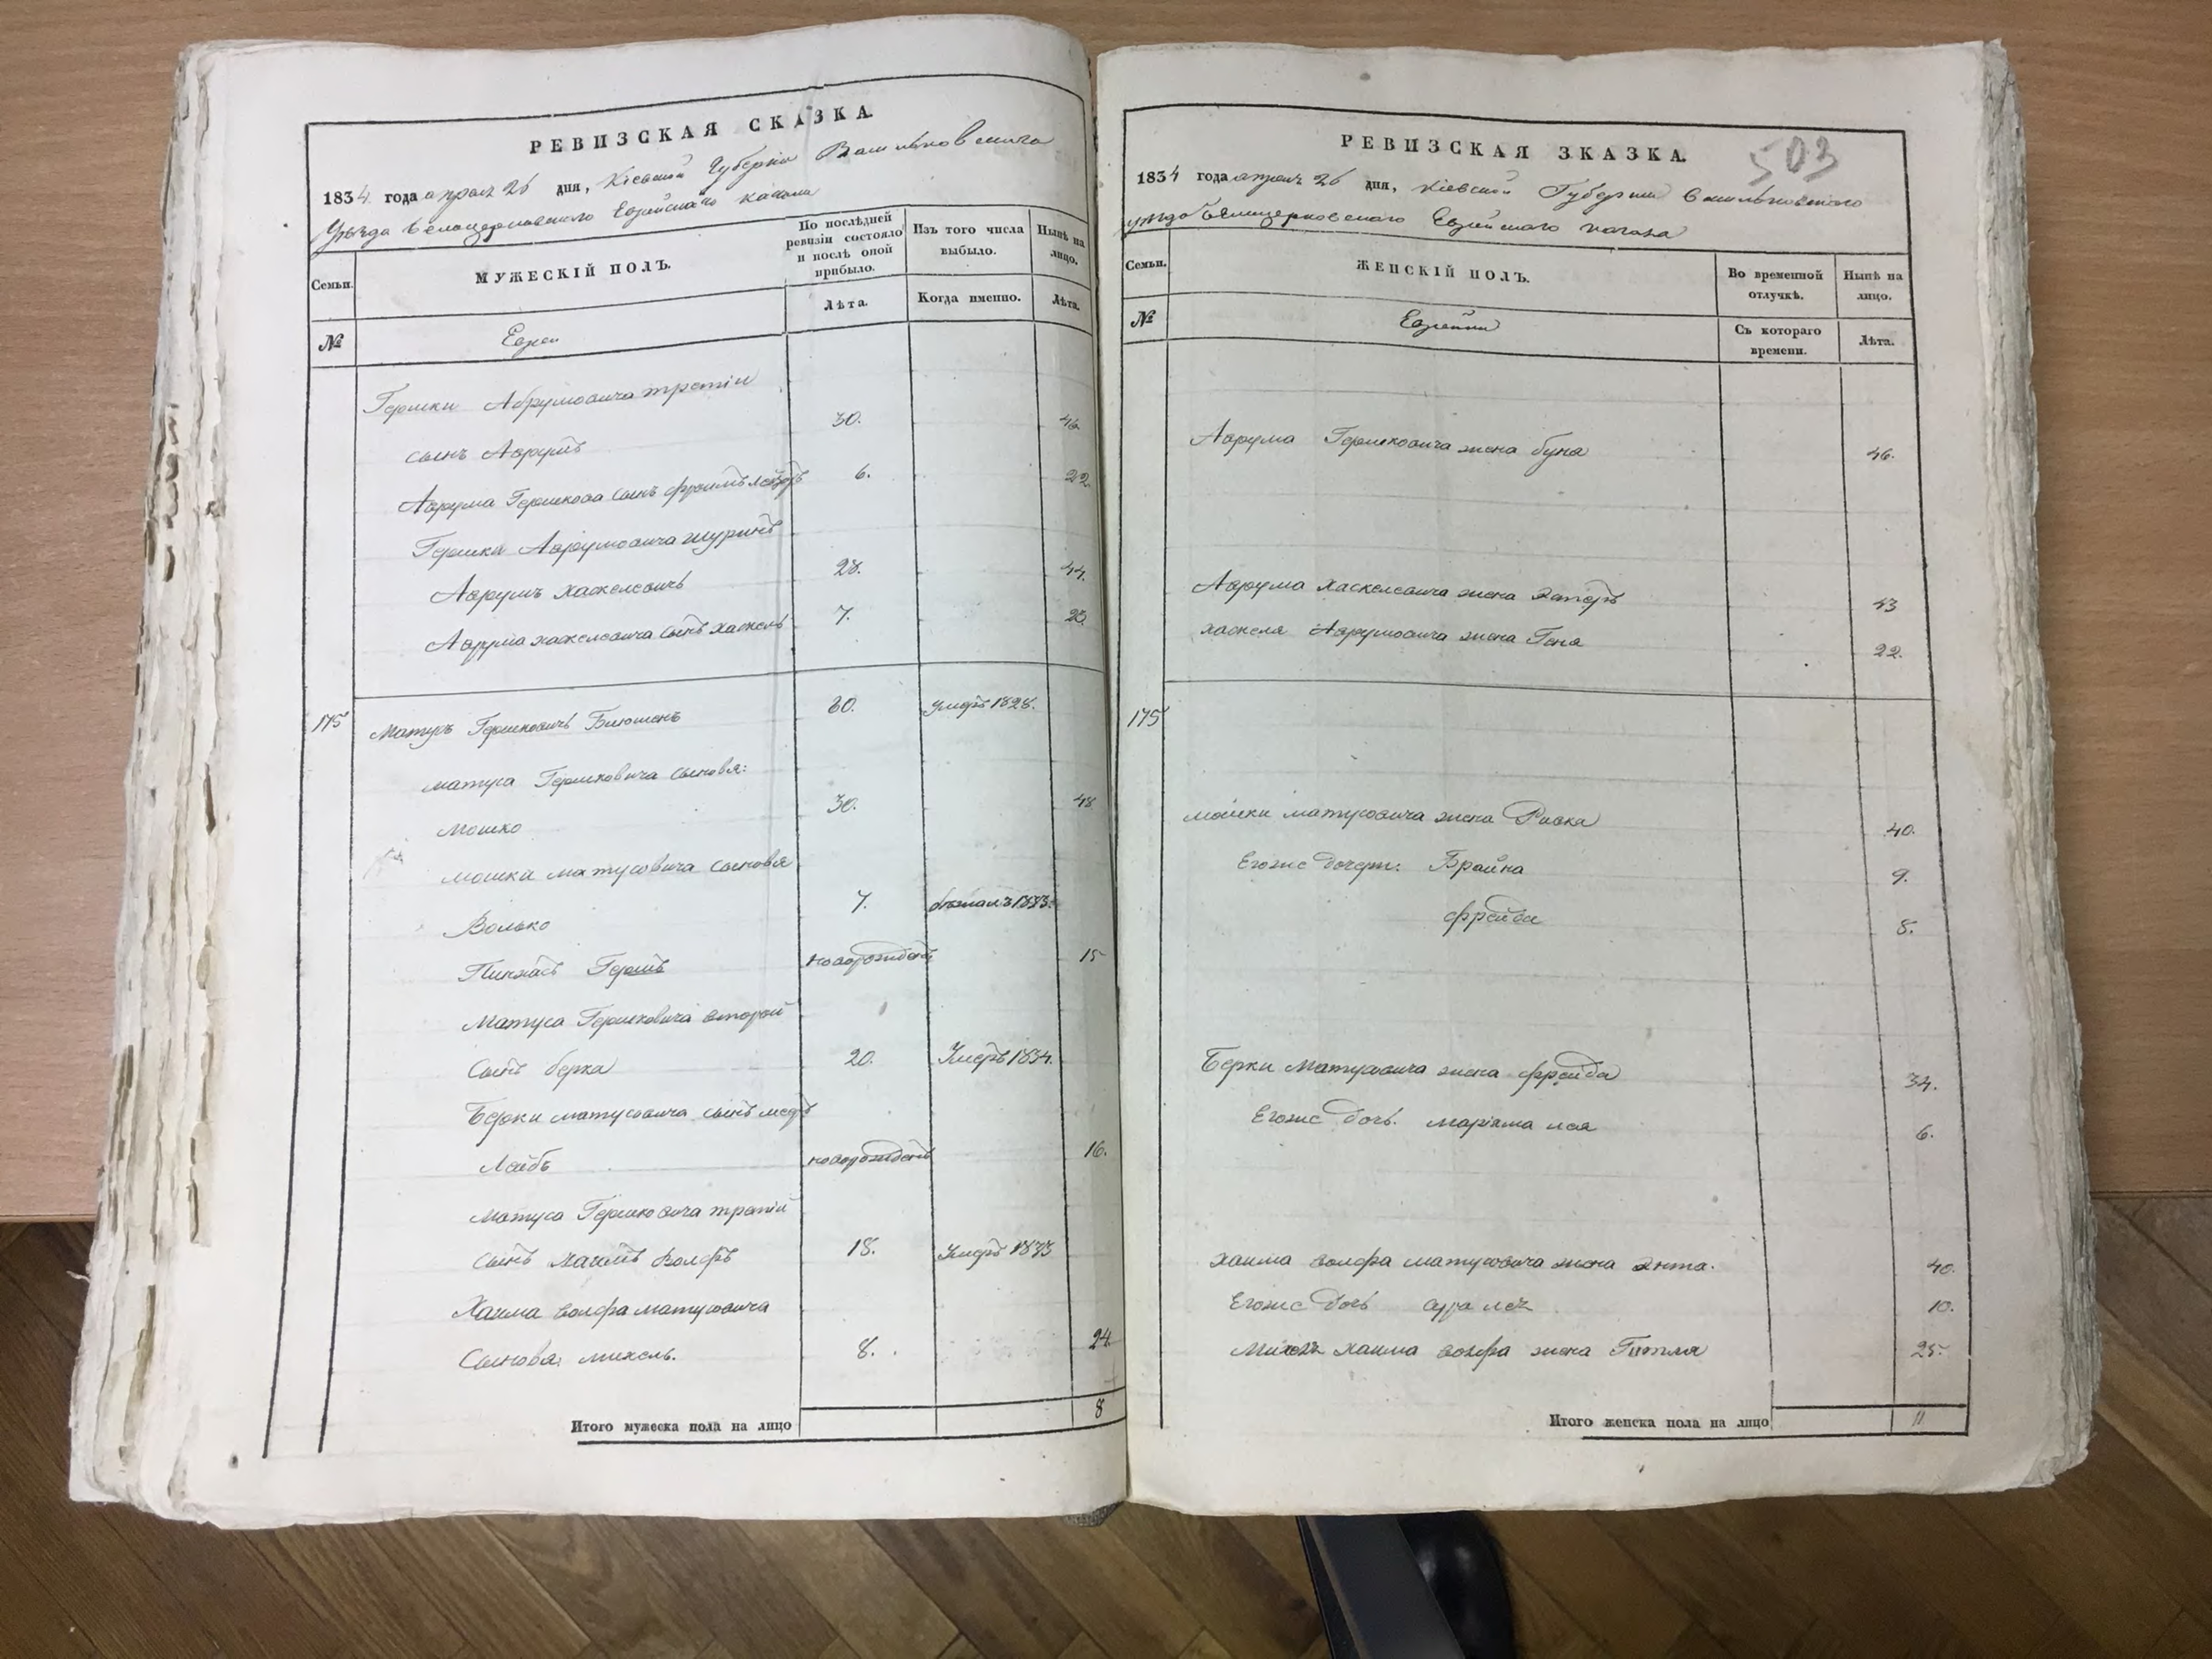 РЕВИЗСКАЯ СКАЗКА.
1834 года апреля 26 дня, Кіевской Губерніи Васильковскаго
Уѣзда Белоцерковского Еврейскаго кагала
Семьи.
МУЖЕСКІЙ ПОЛЪ.
По послѣдней ревизіи состояло и послѣ оной прибыло.
Изъ того числа выбыло.
Нынѣ на лицо.
Лѣта.
Когда именно.
Лѣта.
№
Евреи
Гершки Абрумовича третіи
сынъ Аврумъ 30. 46.
Аврума Гершкова сынъ Фроимъ Лейзоръ 6. 22.
Гершки Аврумовича шуринъ
Аврумъ Хаскелевичъ 28. 44.
Аврума Хаскелевича сынъ Хаскель 7. 23.
175 Матусъ Гершковичъ 60. умеръ 1828.
матуса Гершковича сыновья:
Мошко 30. 48
мошки матусовича сыновья
Волько 7. бежалъ 1833.
Пинхасъ Гершъ новорожденъ 15
Матуса Гершковича второй
Сынъ берка 20. Умеръ 1834.
Берки матусовича сынъ
Лейбъ новорожденъ 16.
Матуса Гершковича третій
сынъ Хаимъ Волфъ 18. Умеръ 1833
Хаима волфа матусовича
Сыновья михель. 8. 24.
Итого мужеска пола на лицо 8
РЕВИЗСКАЯ ЗКАЗКА.
503
1834 года апреля 26 дня, Кіевской Губерніи Васильковского
уѣзда Белоцерковского Еврейского кагала
Семьи.
ЖЕНСКІЙ ПОЛЪ.
Во временной отлучкѣ.
Нынѣ на лицо.
№
Еврейки
Съ котораго времени.
Лѣта.
Аврума Гершковича жена буня 46.
Аврума Хаскелевича жена Эстеръ 43
Хаскеля Аврумовича жена Геня 22.
175
мошки матусовича жена Ривка 40.
Егоже дочери: Брайна 9.
фрейда 8.
Берки Матусовича жена фрейда 34.
Егоже дочь. маріяма лея 6.
Хаима волфа матусовича жена Энта. 40.
Егоже дочь сура лея 10.
Михеля хаима волфа жена Гитля 25.
Итого женска пола на лицо 11